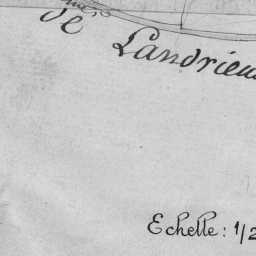 de Landrieu
Echelle: 1/2